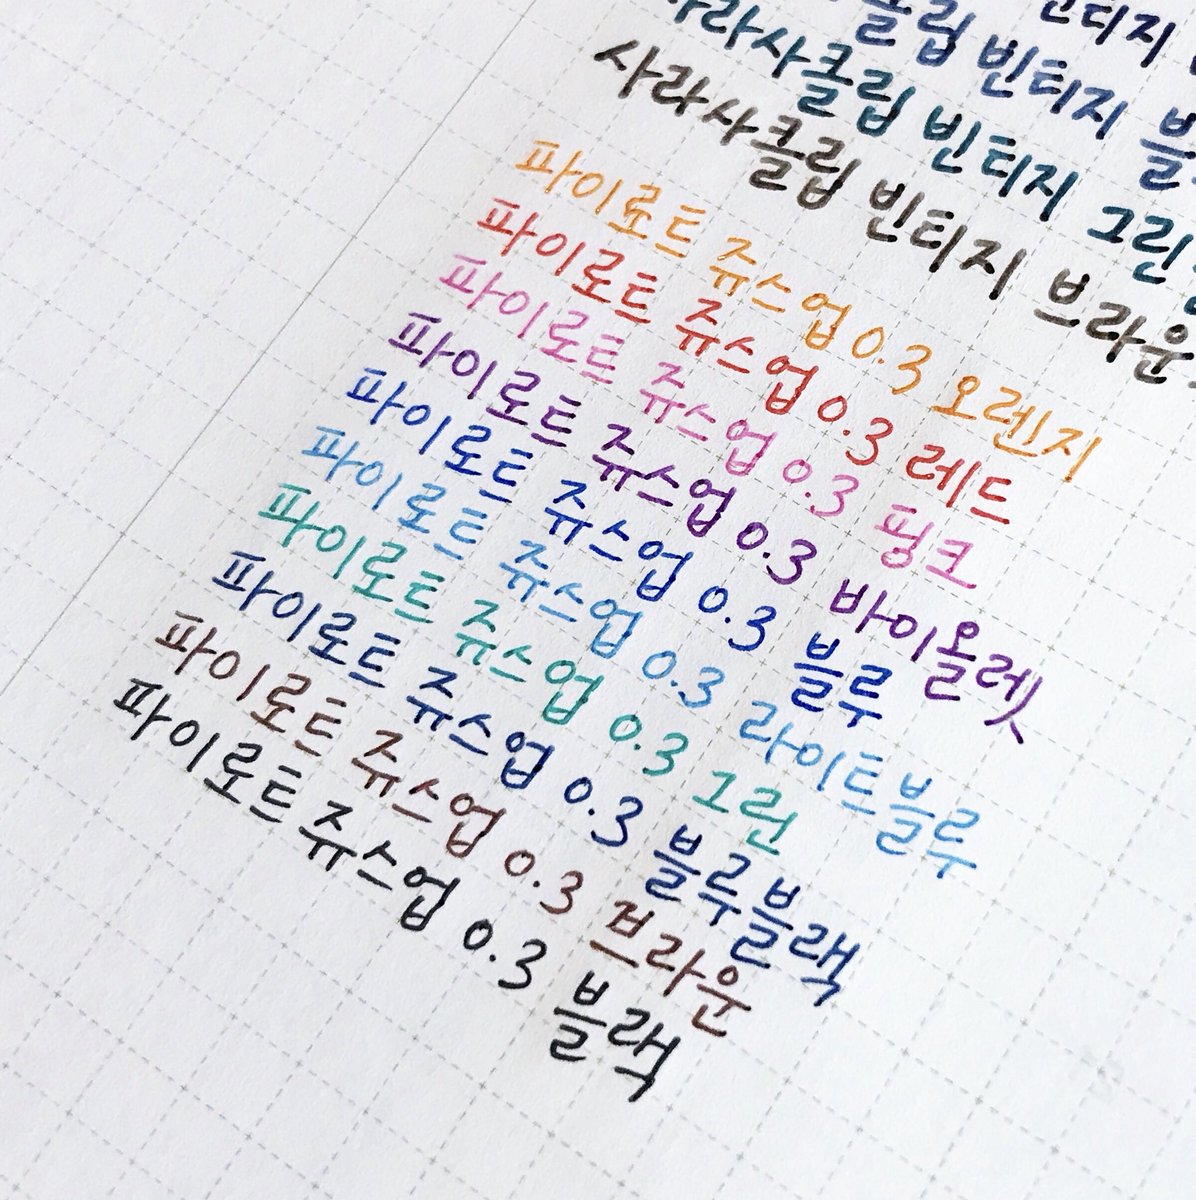 빈티지
클립 빈티지
사라사클립 빈티지 그린
사라사클립 빈티지 브라운
파이로트 쥬스업 0.3 오렌지
파이로트 쥬스업 0.3 레드
파이로트 쥬스업 0.3 핑크
파이로트 쥬스업 0.3 바이올렛
파이로트 쥬스업 0.3 블루
파이로트 쥬스업 0.3 라이트블루
파이로트 쥬스업 0.3 그린
파이로트 쥬스업 0.3 블루블랙
파이로트 쥬스업 0.3 브라운
파이로트 쥬스업 0.3 블랙